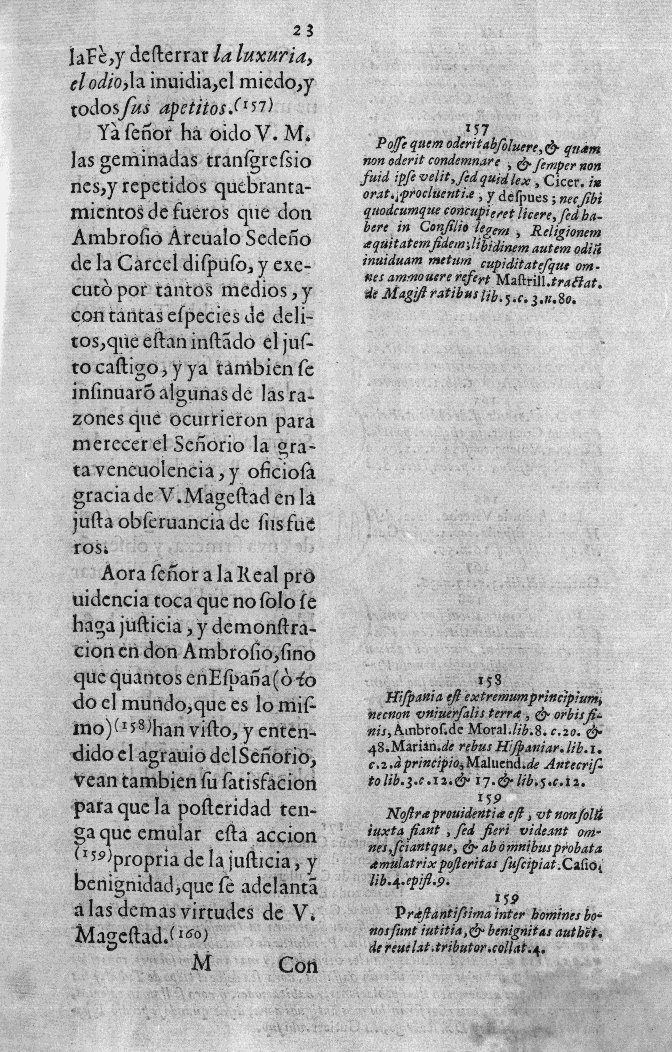 23
laFè,y desterrar la luxuria,
el odio,la inuidia,el miedo,y
todos sus apetitos.(157)
Yà señor ha oido V. M.
las geminadas transgressio
nes,y repetidos quebranta-
mientos de fueros que don
Ambrosio Areualo Sedeño
de la Carcel dispuso, y exe-
cutò por tantos medios, y
con tantas especies de deli-
tos,que estan instãdo el jus-
to castigo, y ya tambien se
insinuarõ algunas de las ra-
zones que ocurrieron para
merecer el Señorio la gra-
ta veneuolencia, y oficiosa
gracia de V. Magestad en la
justa obseruancia de sus fue
ros.
Aora señor a la Real pro
uidencia toca que no solo se
haga justicia, y demonstra-
cion en don Ambrosio,sino
que quantos enEspaña(ò to
do el mundo,que es lo mis-
mo)(158)han visto, y enten-
dido el agrauio delSeñorio,
vean tambien su satisfacion
para que la posteridad ten-
ga que emular esta accion
(159)propria de la justicia, y
benignidad,que se adelantã
a las demas virtudes de V.
Magestad.(160)
M Con
157
Posse quem oderit absoluere, & quæm
non oderit condemnare, & semper non
fuid ipse velit, sed quid lex, Cicer. in
orat. procluentiæ, y despues; nec sibi
quodcumque concupieret licere, sed ha-
bere in Consilio legem, Religionem
æquitatem fidem; libidinem autem odiũ
inuiduam metum cupiditatesque om-
nes ammouere refert Mastrill. tractat.
de Magistratibus lib.5.c.3.n.80.
158
Hispania est extremum principium,
necnon vniuersalis terræ, & orbis fi-
nis, Ambros. de Moral. lib.8.c.20. &
48. Marian. de rebus Hispaniar. lib.1.
c.2. à principio, Maluend. de Antecris-
to lib.3.c.12. & 17. & lib.5.c.12.
159
Nostræ prouidentiæ est, vt non solũ
iuxta fiant, sed fieri videant om-
nes, sciantque, & ab omnibus probata
æmulatrix posteritas suscipiat. Casio,
lib.4.epist.9.
159
Præstantissima inter homines bo-
nos sunt iutitia, & benignitas authẽt.
de reuelat. tributor. collat.4.